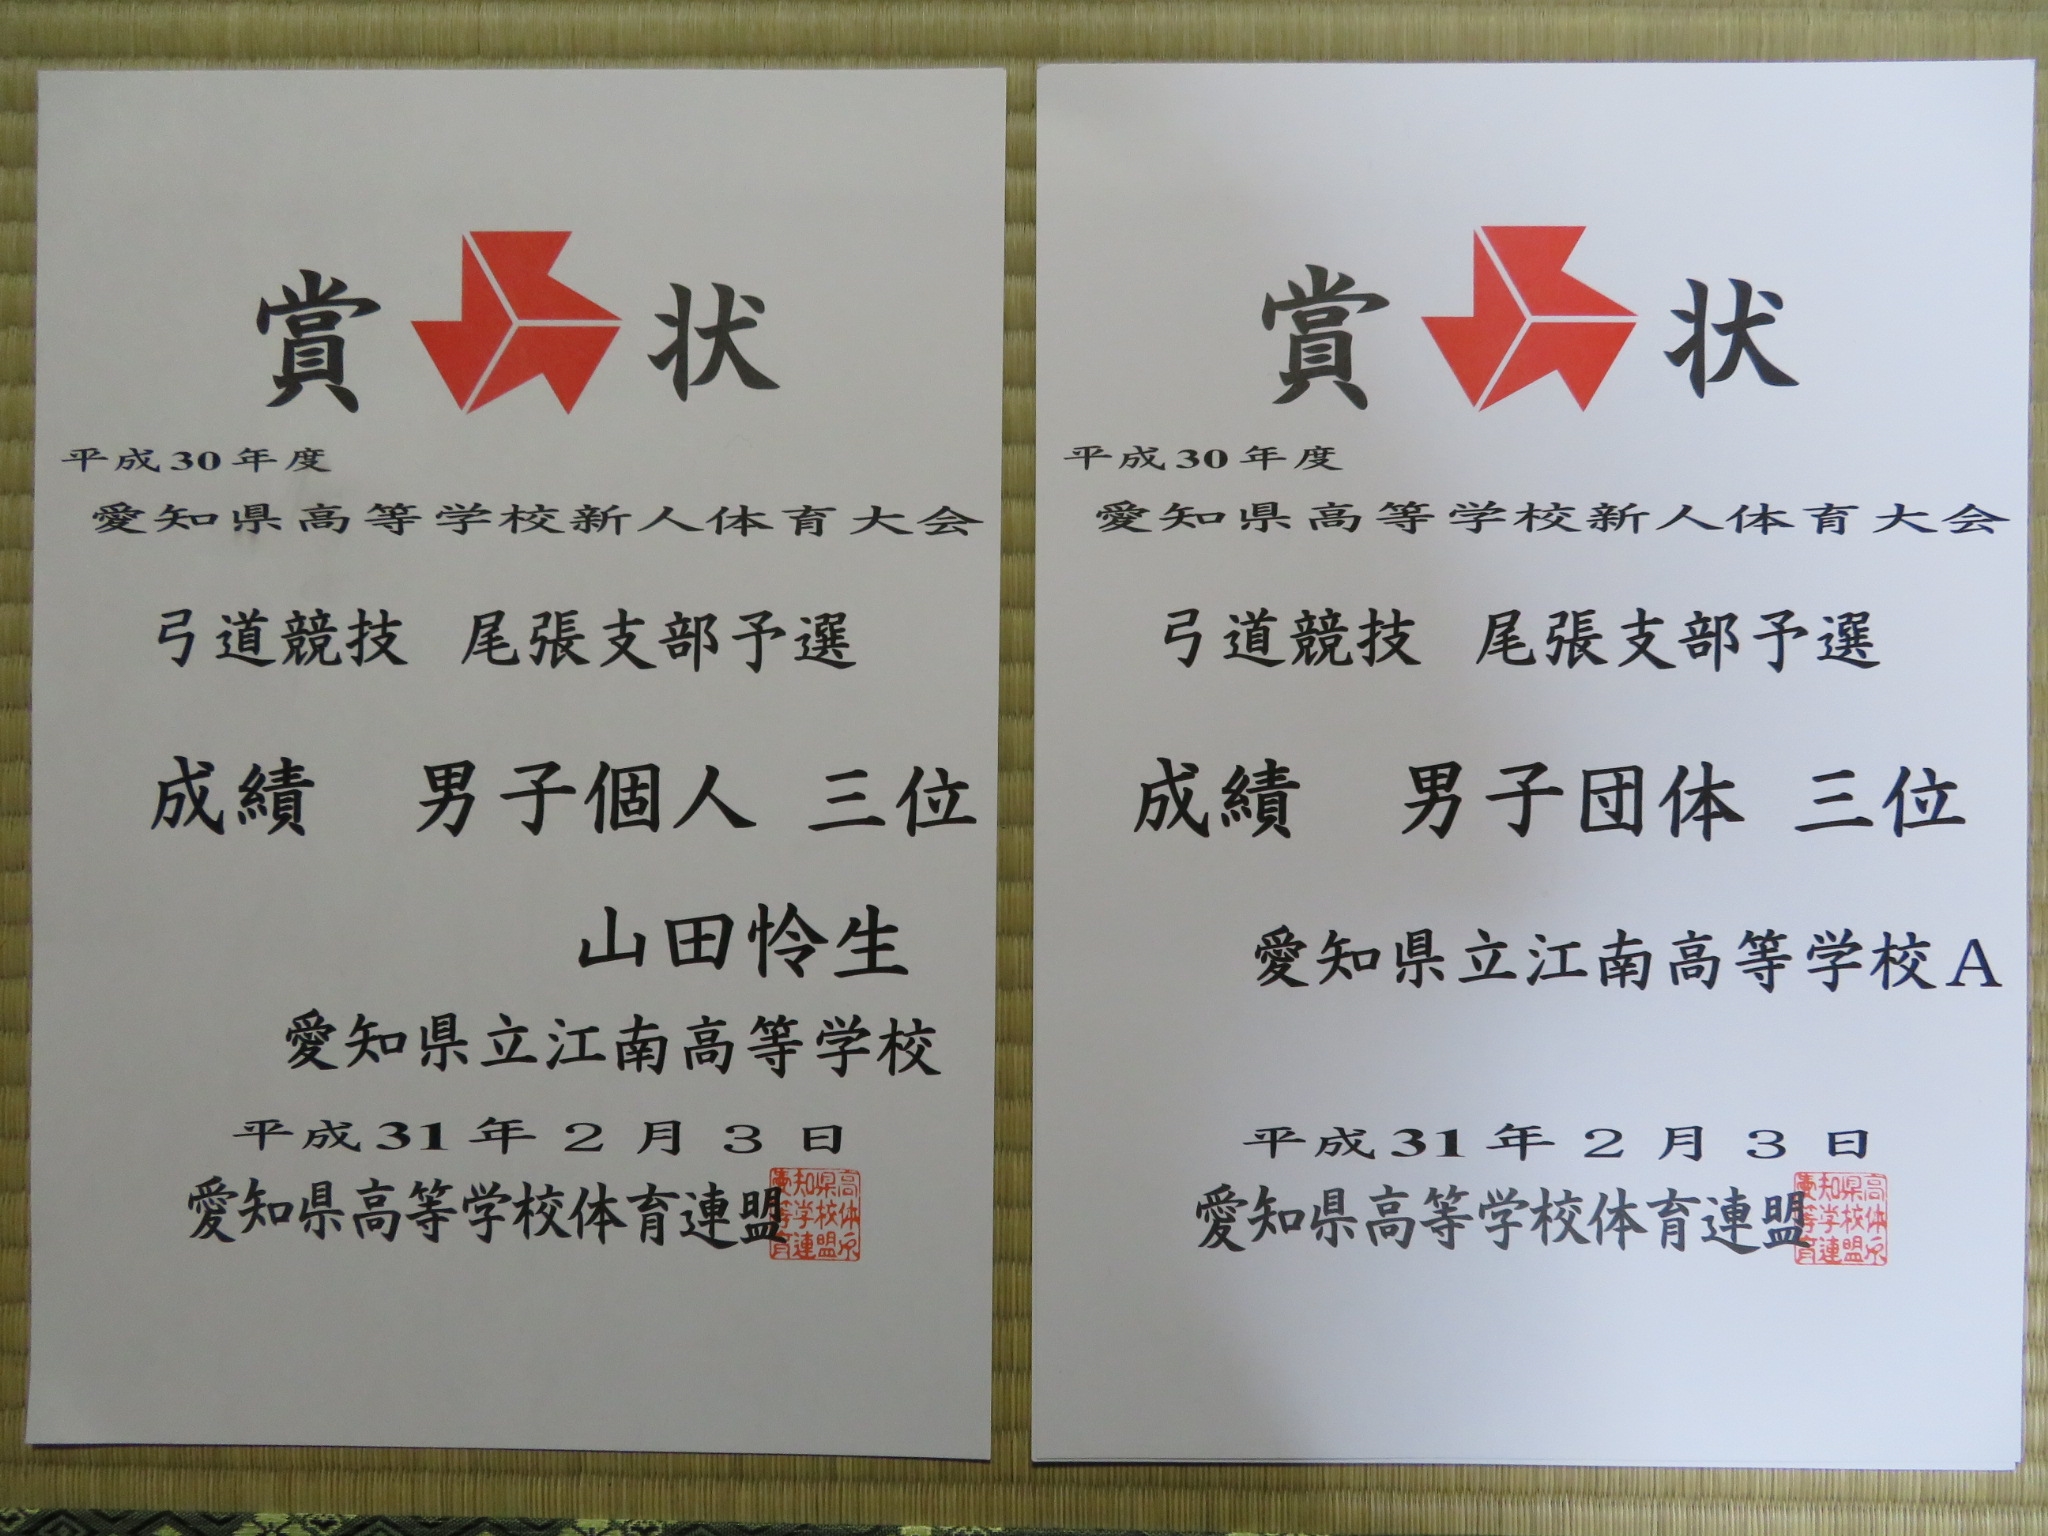 賞状
平成30年度
愛知県高等学校新人体育大会
弓道競技 尾張支部予選
成績 男子個人 三位
山田怜生
愛知県立江南高等学校
平成31年2月3日
愛知県高等学校体育連盟
賞状
平成30年度
愛知県高等学校新人体育大会
弓道競技 尾張支部予選
成績 男子団体 三位
愛知県立江南高等学校A
平成31年2月3日
愛知県高等学校体育連盟